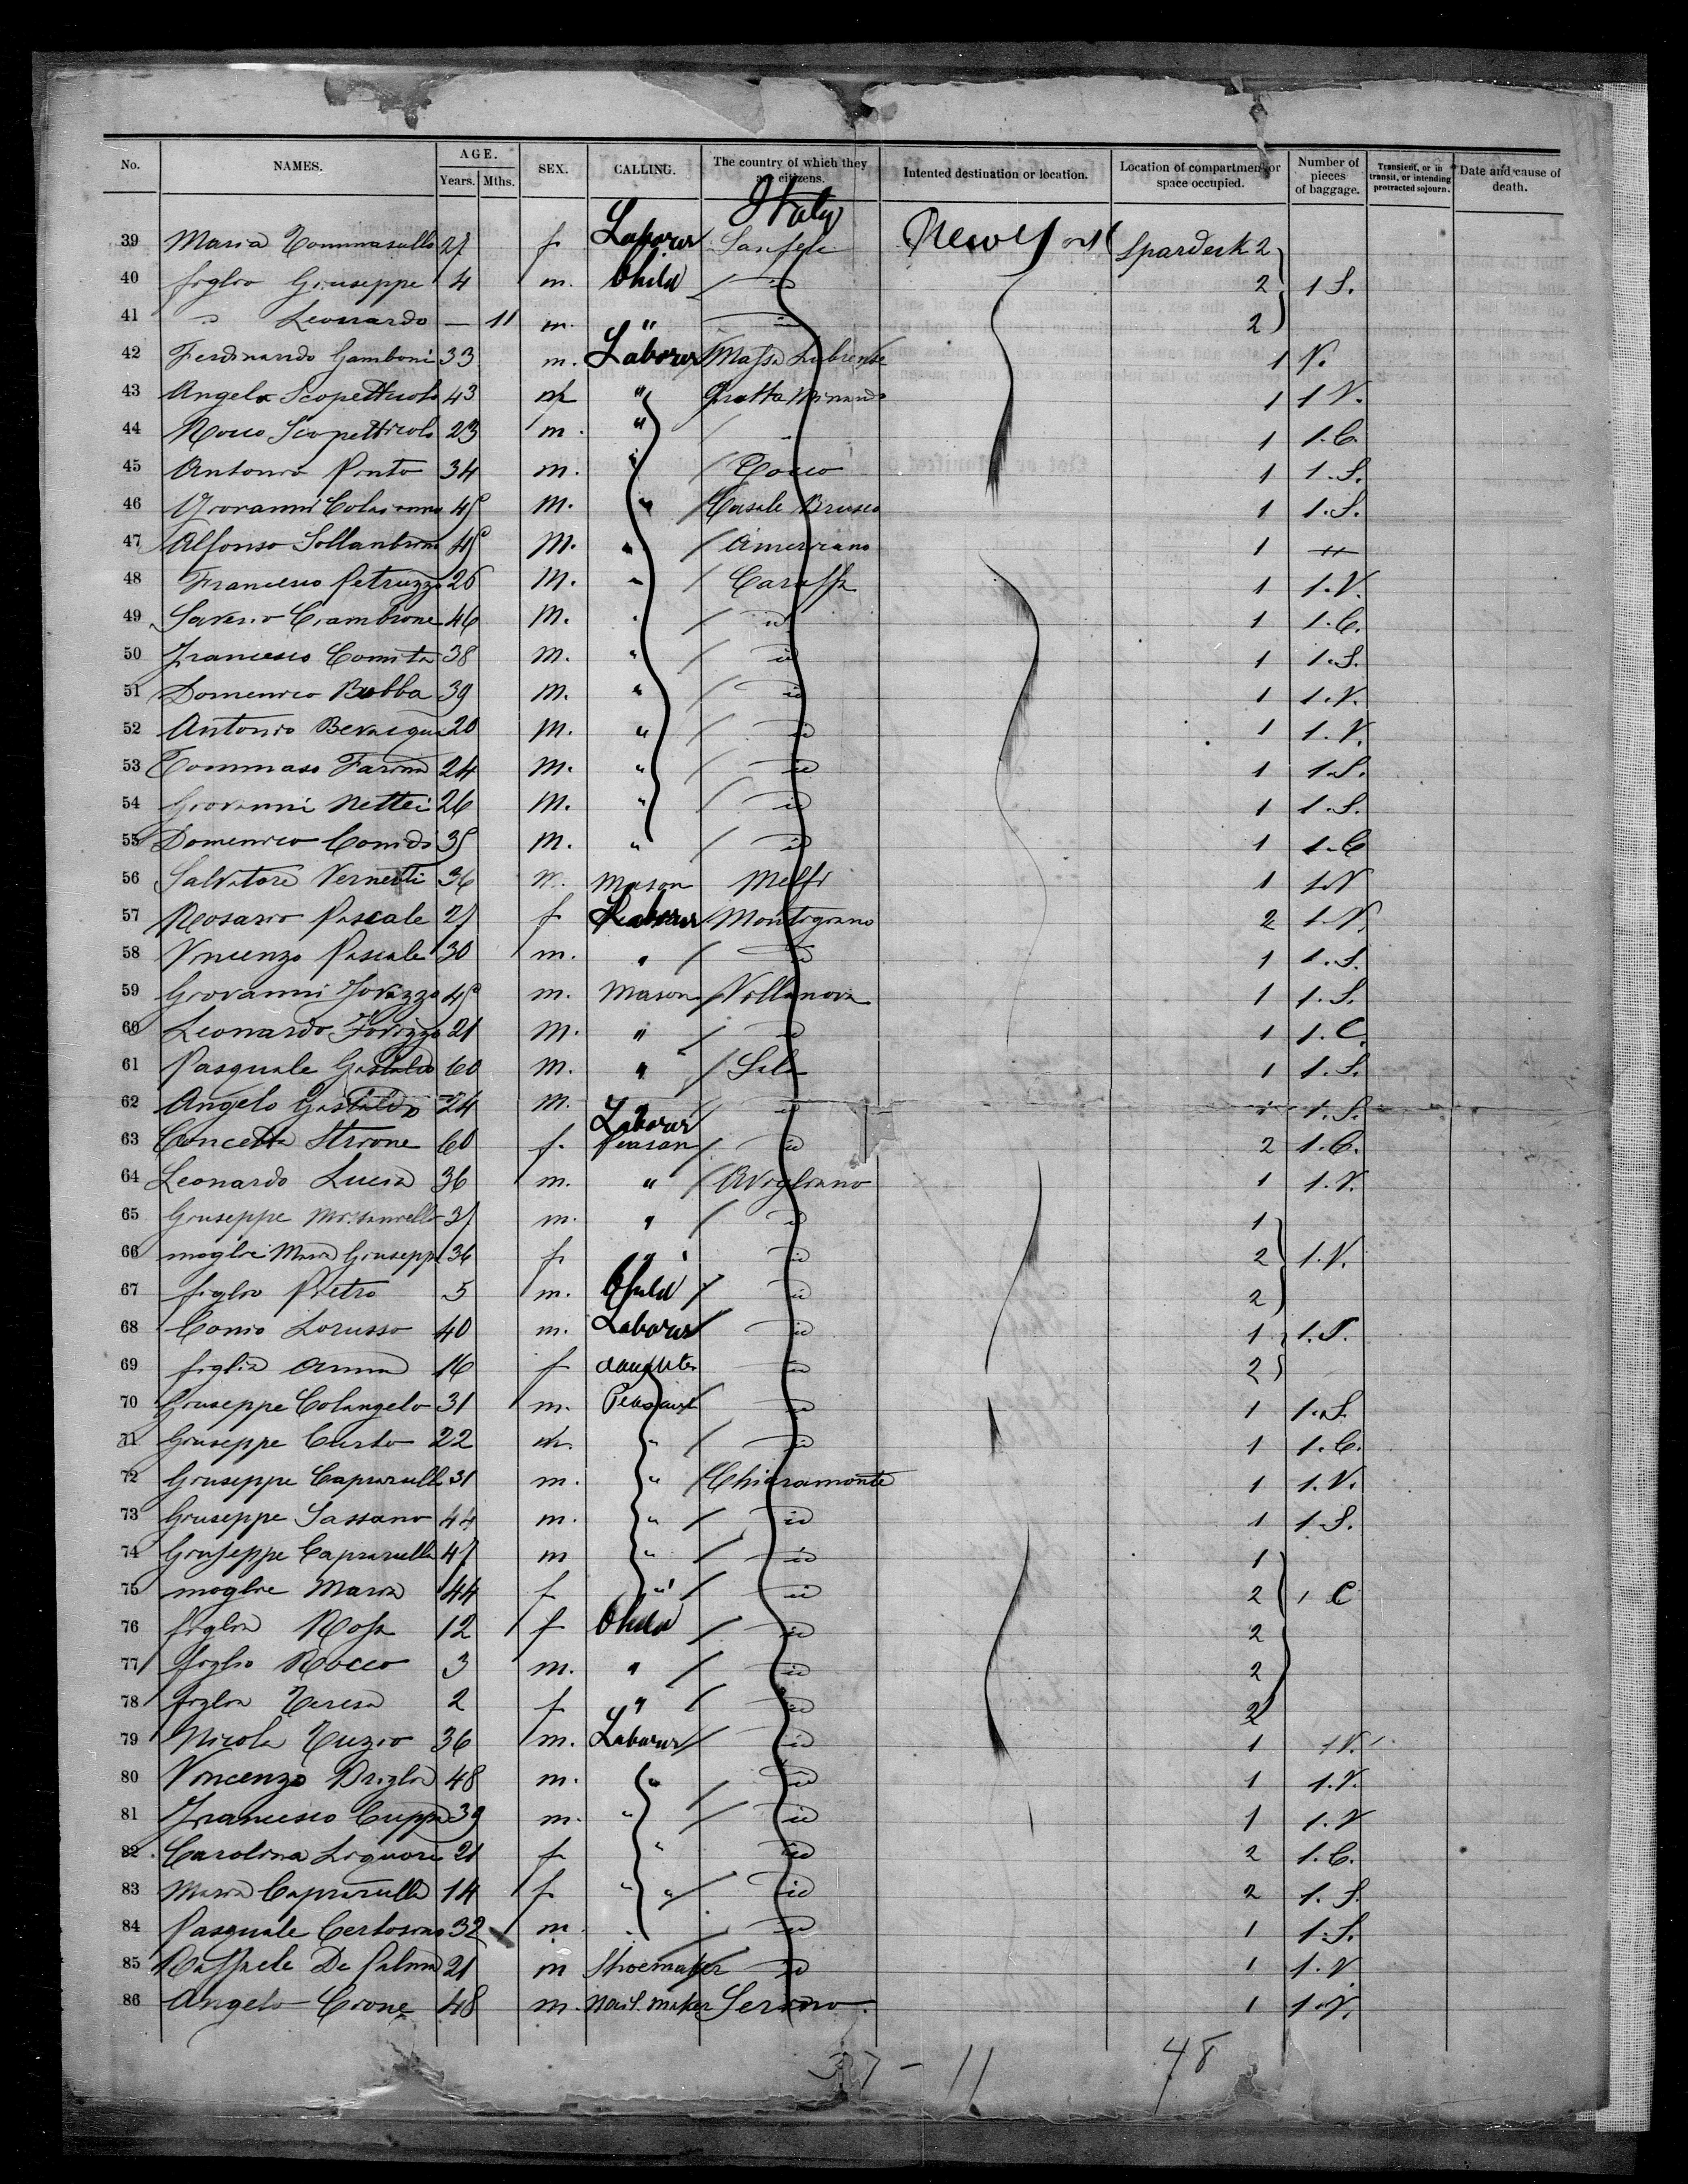 No. NAMES. AGE. Years. Mths. SEX. CALLING. The country of which they are citizens. Intented destination or location. Location of compartment or space occupied. Number of pieces of baggage. Transient, or in transit, or intending protracted sojourn. Date and cause of death.
Italy
39 Maria Tommasullo 27 f Laborer Sanfele New York Spardeck 2
40 figlio Giuseppe 4 m. Child id 2 1 S.
41 " Leonardo — 11 m. " id 2
42 Ferdinando Gamboni 33 m. Laborer Massa Lubrense 1 V.
43 Angelo 43 " Grotta Minarda 1 1 V.
44 Rocco 23 m. " 1 1.C.
45 Antonio Pinto 34 m. " 1 1.S.
46 Giovanni 45 m. " Casale 1 1.S.
47 Alfonso 45 m. " 1 "
48 Francesco Petruzza 26 m. " Caraffa 1 1.V.
49 Saverio Ciambrone 46 m. " id 1 1.C.
50 Francesco Comita 38 m. " id 1 1.S.
51 Domenico Bubba 39 m. " id 1 1.V.
52 Antonio Bevacqua 20 m. " id 1 1.V.
53 Tommaso Farina 24 m. " id 1 1.S.
54 Giovanni Nettei 26 m. " id 1 1.S.
55 Domenico 35 m. " id 1 1.C
56 Salvatore 36 m. Mason Melfi 1 1.V
57 Rosario Pascale 27 f Laborer 2 1.V.
58 Vincenzo Pascale 30 m. " id 1 1.S.
59 Giovanni Jovizzo 45 m. Mason Villanova 1 1.S.
60 Leonardo Jovizzo 21 m. " id 1 1.C.
61 Pasquale Gastaldo 60 m. " Sala 1 1.S.
62 Angelo Gastaldo 24 m. id 1 1.S.
63 Concetta 60 f. Laborer Peasan id 2 1.C.
64 Leonardo Lucia 36 m. " Avigliano 1 1.V.
65 Giuseppe 37 m. " id 1
66 moglie Maria Giuseppa 36 f " id 2 1.V.
67 figlio Pietro 5 m. Child id 2
68 Canio Lorusso 40 m. Laborer id 1 1.S.
69 figlia Anna 16 f daughter id 2
70 Giuseppe Colangelo 31 m. Peasant id 1 1.S.
71 Giuseppe Curto 22 m. " id 1 1.C.
72 Giuseppe Caprarella 31 m. " Chiaramonte 1 1.V.
73 Giuseppe Sassano 44 m. " id 1 1.S.
74 Giuseppe Caprarella 47 m " id 1
75 moglie Maria 44 f " id 2 1 C
76 figlia Rosa 12 f Child id 2
77 figlio Rocco 3 m. " id 2
78 figlia Teresa 2 f " id 2
79 Nicola Tuzio 36 m. Laborer id 1 1 V.
80 Vincenzo Briglia 48 m. " id 1 1.V.
81 Francesco Cuppa 39 m. " id 1 1.V
82 Carolina Liguori 21 f " id 2 1.C.
83 Maria Caprarella 14 f " id 2 1.S.
84 Pasquale Certosino 32 m. " id 1 1.S.
85 Raffaele De Palma 21 m Shoemaker id 1 1.V.
86 Angelo Cirone 48 m. Nail. maker Serino. 1 1.V.
37 - 11 48